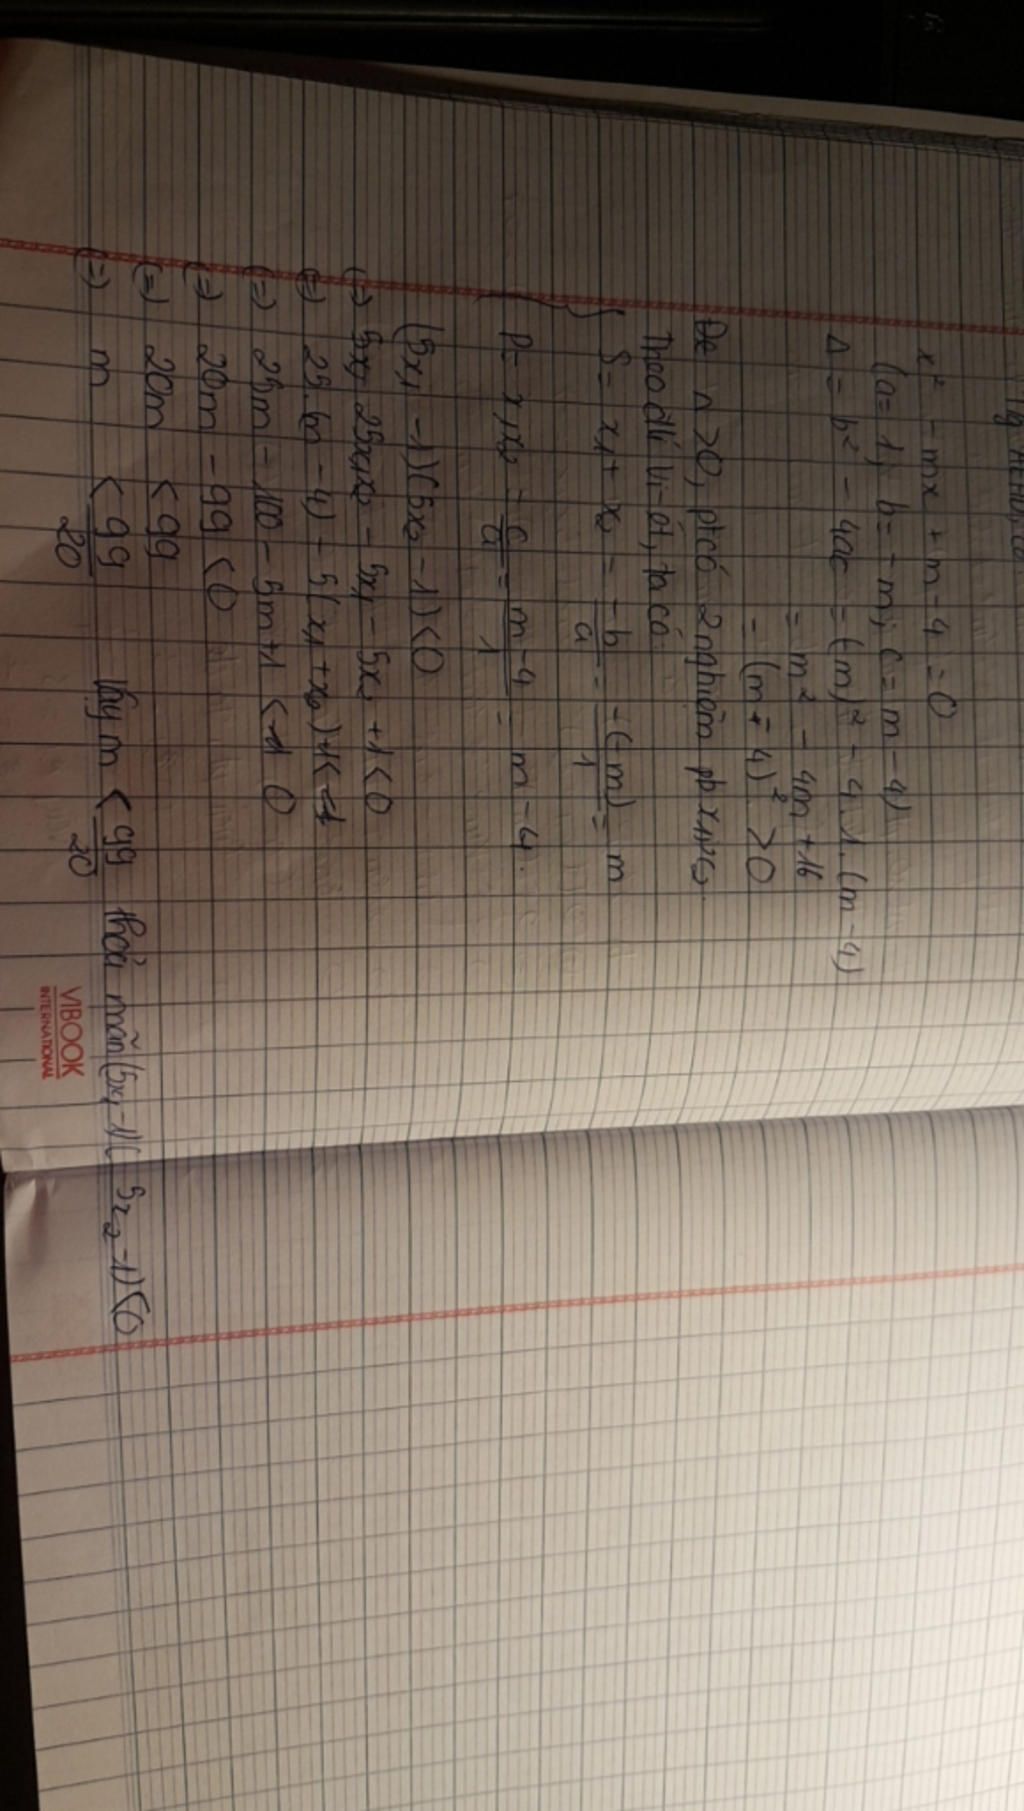 x² - mx + m - 4 = 0
(a = 1; b = -m; c = m - 4)
Δ = b² - 4ac = (-m)² - 4.1.(m - 4)
= m² - 4m + 16
= (m - 4)² > 0
Để Δ > 0, pt có 2 nghiệm pb x₁, x₂
Theo đlí Vi-ét, ta có:
S = x₁ + x₂ = -b/a = -(-m)/1 = m
P = x₁x₂ = c/a = m-4/1 = m - 4.
(5x₁ - 1)(5x₂ - 1) < 0
(=) 25x₁x₂ - 5x₁ - 5x₂ + 1 < 0
(=) 25.(m - 4) - 5(x₁ + x₂) + 1 <
(=) 25m - 100 - 5m + 1 < 0
(=) 20m - 99 < 0
(=) 20m < 99
(=) m < 99/20 Vậy m < 99/20 thoả mãn (5x₁ - 1)(5x₂ - 1) < 0
VIBOOK
INTERNATIONAL